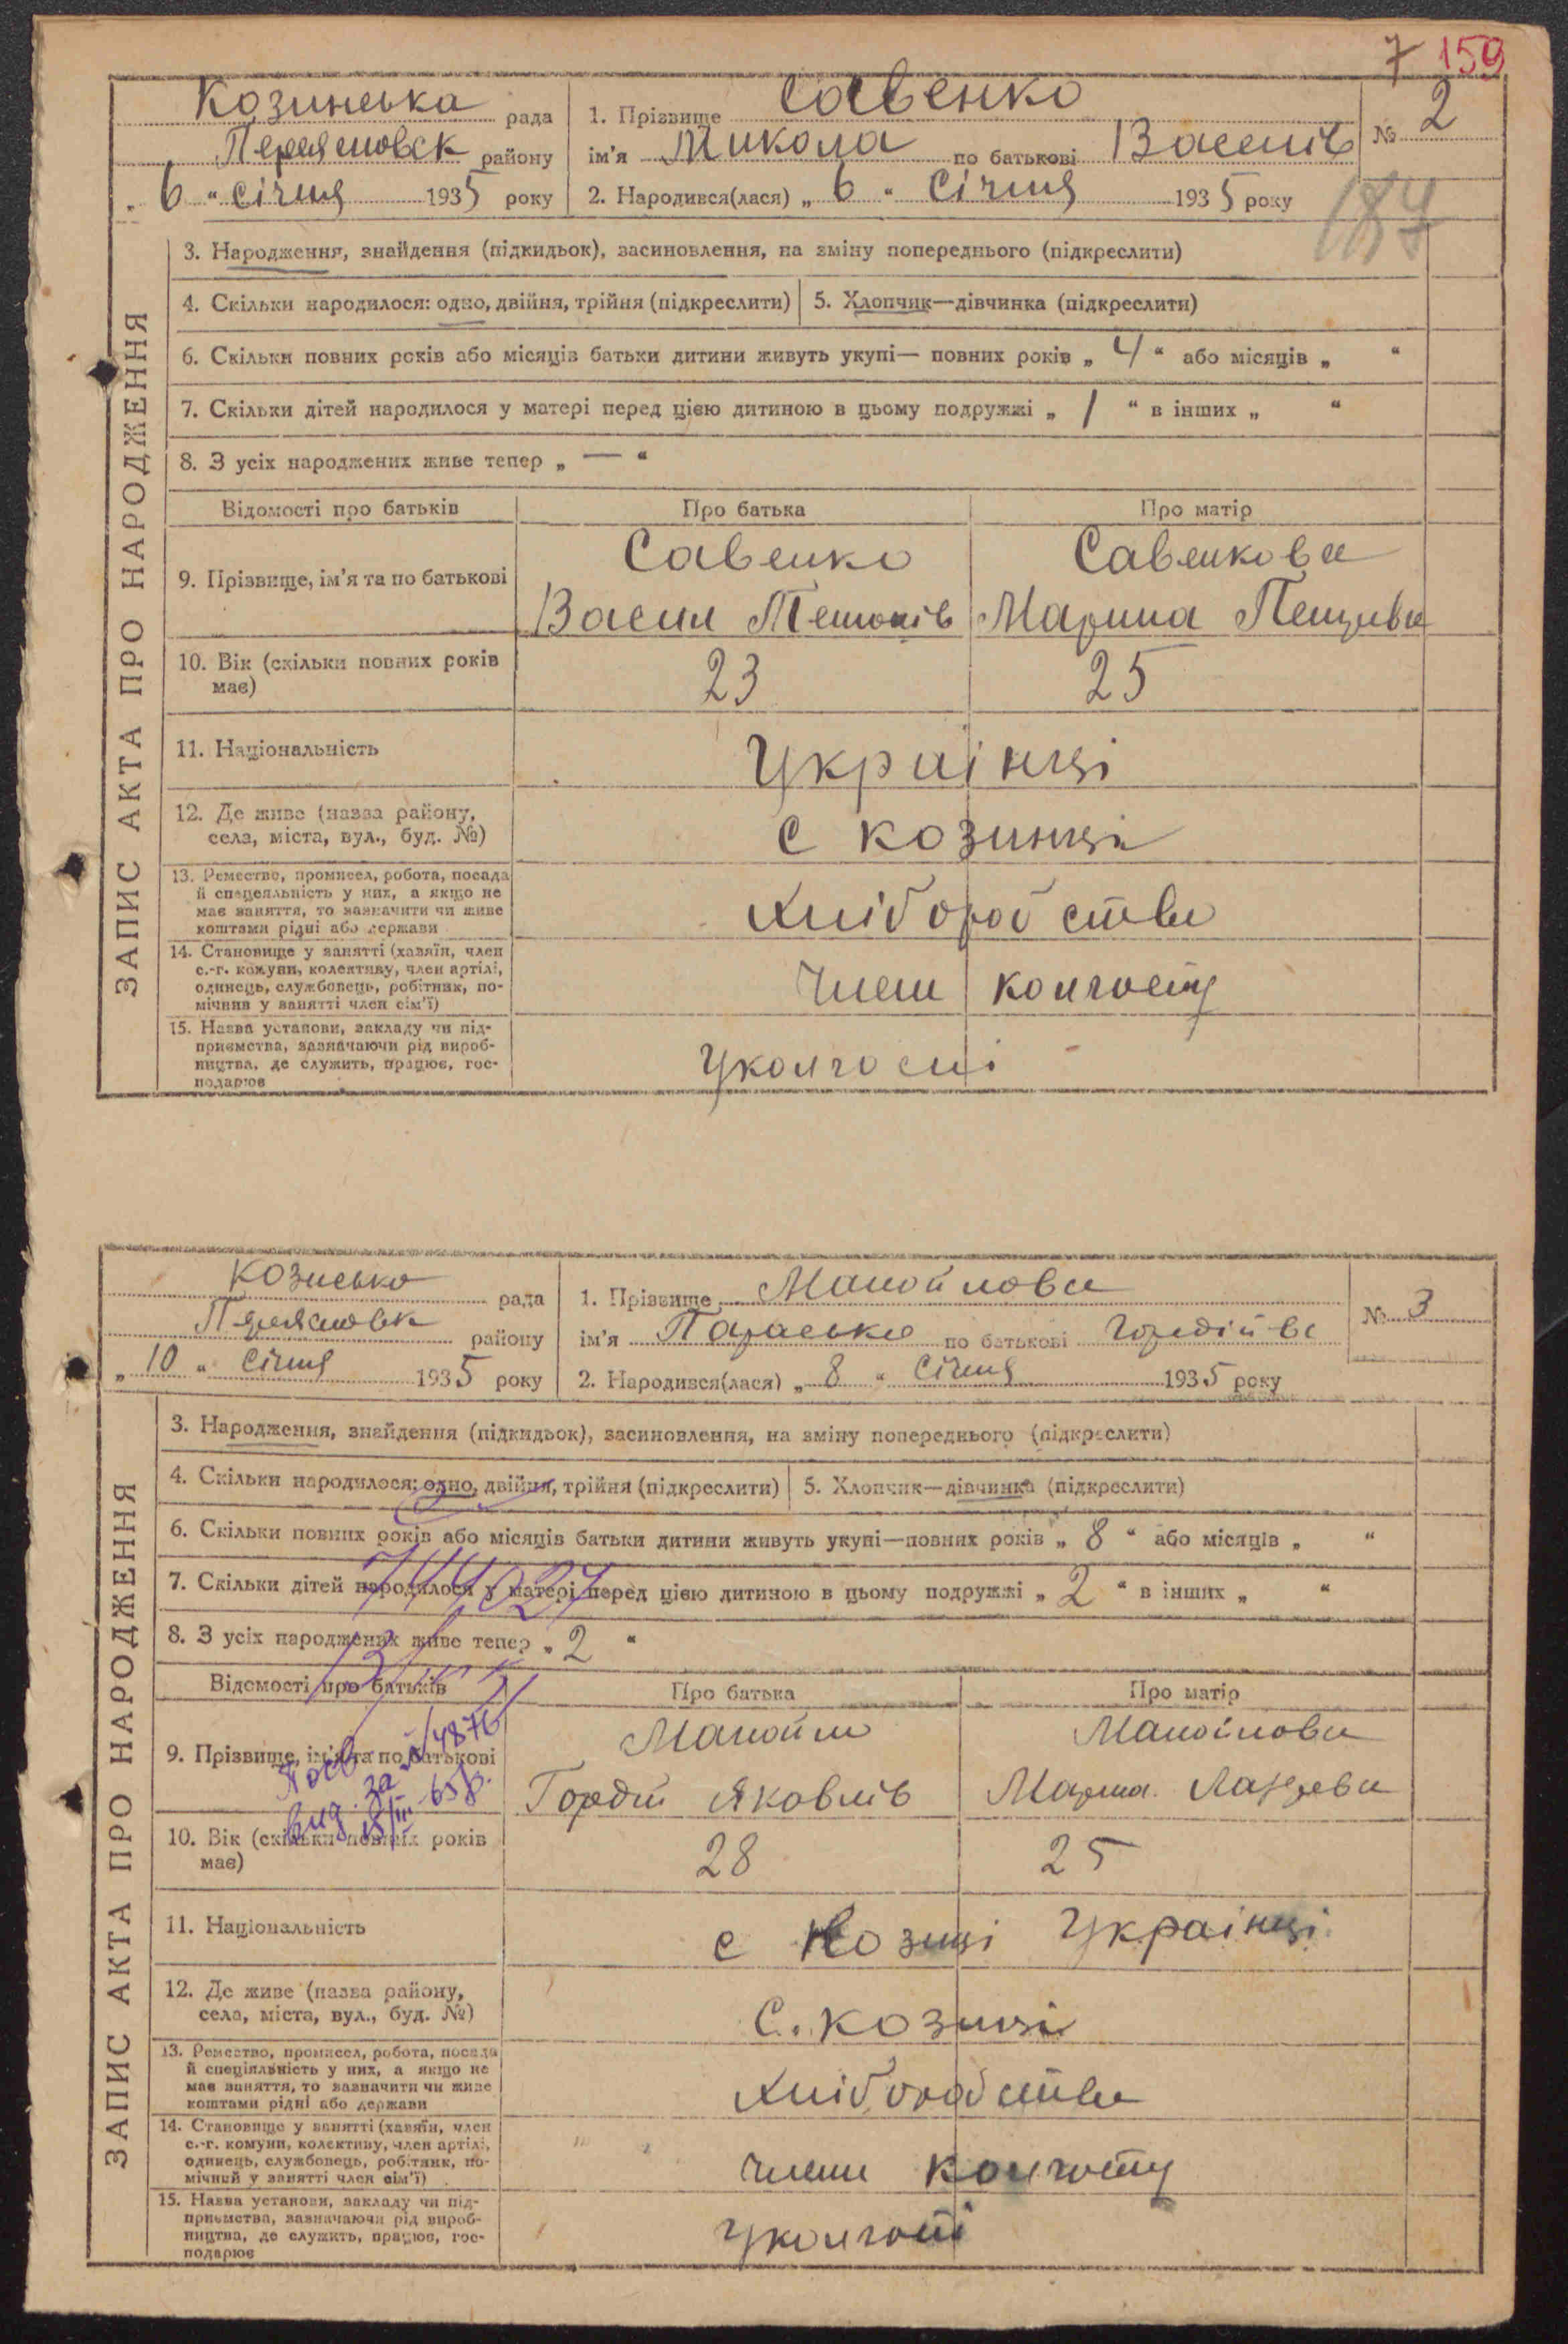 7 159
Козинська рада
Переяславск району
" 6 " Січня 1935 року
1. Прізвище Савенко
ім'я Микола по батькові Василів
2. Народився(лася) „ 6 " Січня 1935 року
№ 2
187
ЗАПИС АКТА ПРО НАРОДЖЕННЯ
3. Народження, знайдення (підкидьок), засиновлення, на зміну попереднього (підкреслити)
4. Скільки народилося: одно, двійня, трійня (підкреслити) 5. Хлопчик—дівчинка (підкреслити)
6. Скільки повних років або місяців батьки дитини живуть укупі— повних років „ 4 " або місяців „ "
7. Скільки дітей народилося у матері перед цією дитиною в цьому подружжі „ 1 " в інших „ "
8. З усіх народжених живе тепер „ — "
Відомості про батьків Про батька Про матір
9. Прізвище, ім'я та по батькові
Савенко
Васил
Савенкова
Марина
10. Вік (скільки повних років
має)
23 25
11. Національність
Українці
12. Де живе (назва району,
села, міста, вул., буд. №)
с Козинці
13. Ремество, промисел, робота, посада
й спецеяльність у них, а якщо не
має заняття, то зазначити чи живе
коштами рідні або держави
Хліборобства
14. Становище у занятті (хазяїн, член
с.-г. комуни, колективу, член артілі,
одинець, службовець, робітник, по-
мічник у занятті член сім'ї)
Члени колгоспу
15. Назва установи, закладу чи під-
приємства, зазначаючи рід вироб-
ництва, де служить, працює, гос-
подарює
Уколгоспі
Козиська рада
району
„ 10 " Січня 1935 року
1. Прізвище Манойлова
ім'я Параська по батькові Гордійва
2. Народився(лася) „ 8 " Січня 1935 року
№ 3
ЗАПИС АКТА ПРО НАРОДЖЕННЯ
3. Народження, знайдення (підкидьок), засиновлення, на зміну попереднього (підкреслити)
4. Скільки народилося: одно, двійня, трійня (підкреслити) 5. Хлопчик—дівчинка (підкреслити)
6. Скільки повних років або місяців батьки дитини живуть укупі—повних років „ 8 " або місяців „ "
7. Скільки дітей народилося у матері перед цією дитиною в цьому подружжі „ 2 " в інших „ "
8. З усіх народжених живе тепер „ 2 "
Відомості про батьків Про батька Про матір
9. Прізвище, ім'я та по батькові
Манойло
Гордій Яковлів
Манойлова
10. Вік (скільки повних років
має)
28 25
11. Національність
с Козинці Українці
12. Де живе (назва району,
села, міста, вул., буд. №)
С. Козинці
13. Ремество, промисел, робота, посада
й спеціяльність у них, а якщо не
має заняття, то зазначити чи живе
коштами рідні або держави
Хліборобства
14. Становище у занятті (хазяїн, член
с.-г. комуни, колективу, член артілі,
одинець, службовець, робітник, по-
мічний у занятті член сім'ї)
члени колгоспу
15. Назва установи, закладу чи під-
приємства, зазначаючи рід вироб-
ництва, де служить, працює, гос-
подарює
Уколгоспі